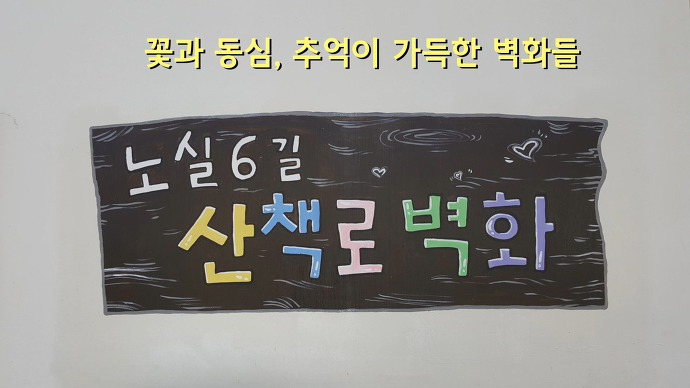 꽃과 동심, 추억이 가득한 벽화들
노실6길
산책로벽화